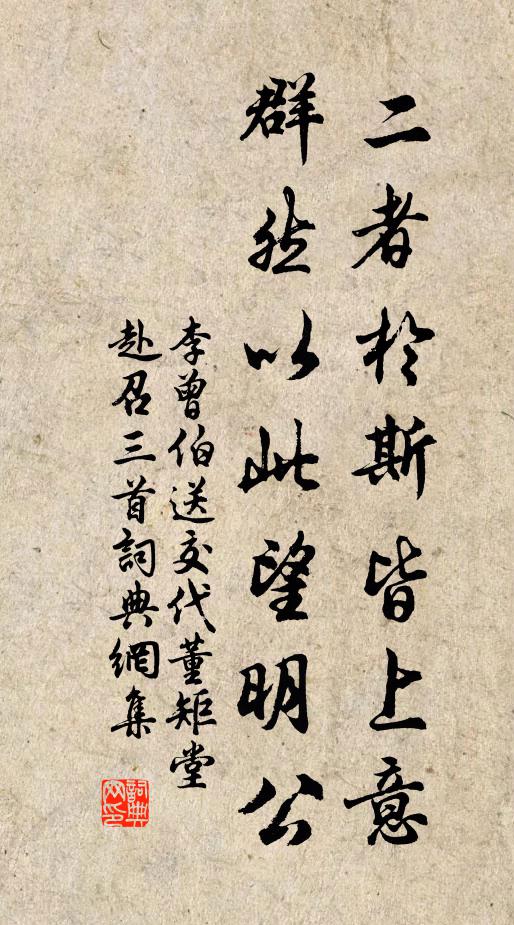 二者於斯皆上意
群然以此望明公
李曾伯送交代董矩堂
赴召三首詞典網集
詞典網印